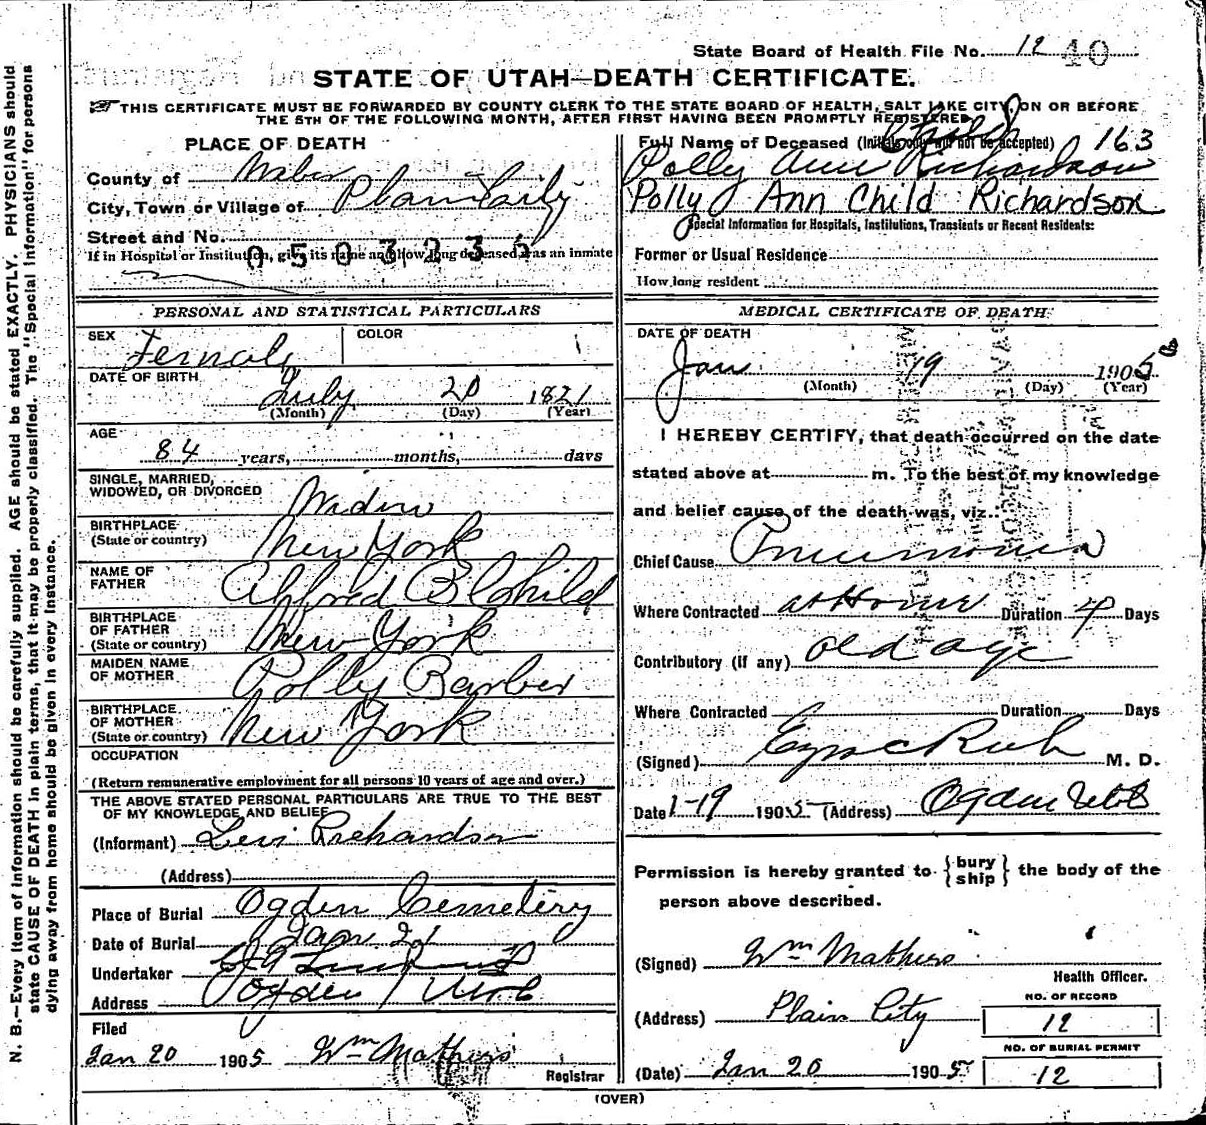 State Board of Health File No. 12 40
STATE OF UTAH—DEATH CERTIFICATE.
THIS CERTIFICATE MUST BE FORWARDED BY COUNTY CLERK TO THE STATE BOARD OF HEALTH, SALT LAKE CITY, ON OR BEFORE
THE 5TH OF THE FOLLOWING MONTH, AFTER FIRST HAVING BEEN PROMPTLY REGISTERED.
PLACE OF DEATH
County of Weber
City, Town or Village of Plain City
Street and No.
0503236
If in Hospital or Institution, give its name and how long deceased was an inmate
Full Name of Deceased (Initials only will not be accepted) 163
Child
Polly Ann Richardson
Polly Ann Child Richardson
Special Information for Hospitals, Institutions, Transients or Recent Residents:
Former or Usual Residence
How long resident
PERSONAL AND STATISTICAL PARTICULARS
SEX Female
COLOR
DATE OF BIRTH
July 20 1821
(Month) (Day) (Year)
AGE
84 years, months, days
SINGLE, MARRIED,
WIDOWED, OR DIVORCED Widow
BIRTHPLACE
(State or country) New York
NAME OF
FATHER Alfred B Child
BIRTHPLACE
OF FATHER
(State or country) New York
MAIDEN NAME
OF MOTHER Polly Barber
BIRTHPLACE
OF MOTHER
(State or country) New York
OCCUPATION
(Return remunerative employment for all persons 10 years of age and over.)
THE ABOVE STATED PERSONAL PARTICULARS ARE TRUE TO THE BEST
OF MY KNOWLEDGE AND BELIEF
(Informant) Levi Richardson
(Address)
Place of Burial Ogden Cemetery
Date of Burial Jan 21
Undertaker
Address Ogden Utah
Filed
Jan 20 1905 Wm Mathers
Registrar
MEDICAL CERTIFICATE OF DEATH
DATE OF DEATH
Jan. 19 1905
(Month) (Day) (Year)
I HEREBY CERTIFY, that death occurred on the date
stated above at m. To the best of my knowledge
and belief cause of the death was, viz.:
Chief Cause Pneumonia
Where Contracted at Home Duration 4 Days
Contributory (if any) old age
Where Contracted Duration Days
(Signed) Ezra C Rich M. D.
Date 1-19 1905 (Address) Ogden Utah
Permission is hereby granted to { bury ship } the body of the
person above described.
(Signed) Wm Mathers
Health Officer.
(Address) Plain City
NO. OF RECORD
12
NO. OF BURIAL PERMIT
(Date) Jan 20 1905
12
(OVER)
N. B.—Every item of information should be carefully supplied. AGE should be stated EXACTLY. PHYSICIANS should
state CAUSE OF DEATH in plain terms, that it may be properly classified. The "Special Information" for persons
dying away from home should be given in every instance.